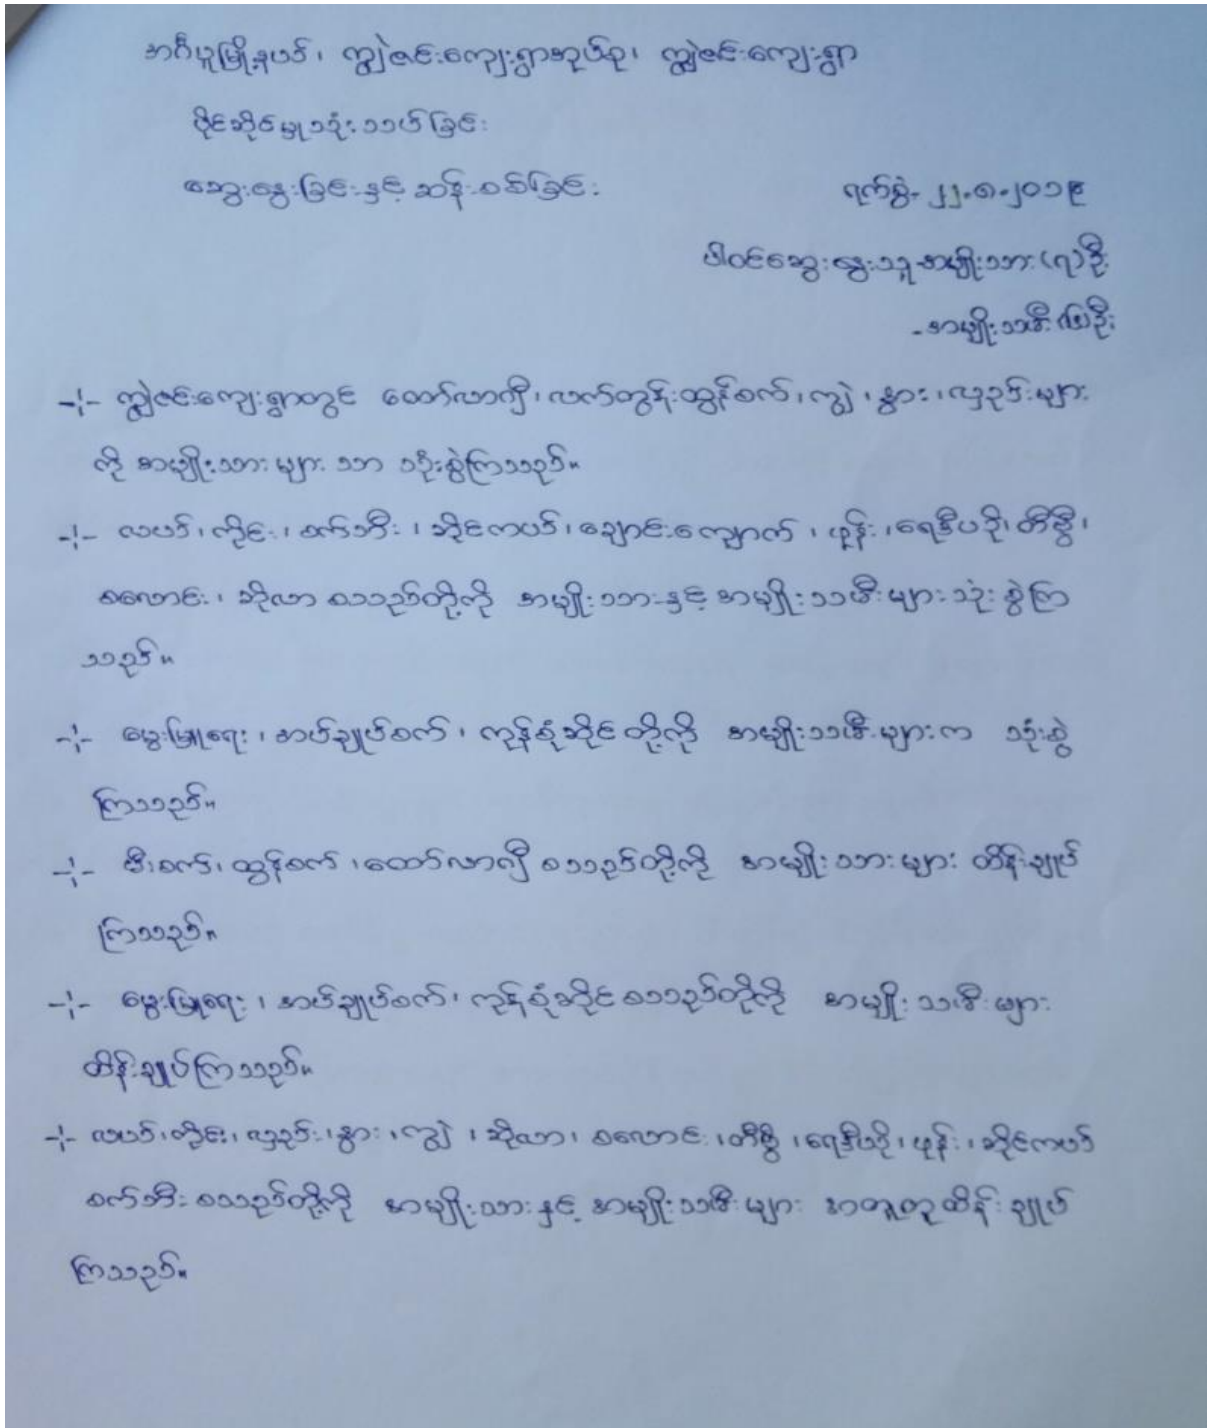 အင်္ဂပူမြို့နယ်၊ ကျွဲဇင်းကျေးရွာအုပ်စု၊ ကျွဲဇင်းကျေးရွာ
ပိုင်ဆိုင်မှုသုံးသပ်ခြင်း
ဆွေးနွေးခြင်းနှင့် ဆန်းစစ်ခြင်း
ရက်စွဲ- ၂၂.၈.၂၀၁၉
ပါဝင်ဆွေးနွေးသူ အမျိုးသား (၇) ဦး
- အမျိုးသမီး ဦး
-:- ကျွဲဇင်းကျေးရွာတွင် ထော်လာဂျီ၊ လက်တွန်းထွန်စက်၊ ကျွဲ၊ နွား၊ လှည်းများ
ကို အမျိုးသားများ သာ သုံးစွဲကြသည်။
-:- လယ်၊ ကိုင်း၊ စက်ဘီး၊ ဆိုင်ကယ်၊ ချောင်းကျောက်၊ ဖုန်း၊ ရေဒီယို၊ တီဗွီ၊
စလောင်း၊ ဆိုလာ စသည်တို့ကို အမျိုးသားနှင့် အမျိုးသမီးများ သုံးစွဲကြ
သည်။
-:- မွေးမြူရေး၊ အပ်ချုပ်စက်၊ ကုန်စုံဆိုင် တို့ကို အမျိုးသမီးများက သုံးစွဲ
ကြသည်။
-:- မီးစက်၊ ထွန်စက်၊ ထော်လာဂျီ စသည်တို့ကို အမျိုးသားများ ထိန်းချုပ်
ကြသည်။
-:- မွေးမြူရေး၊ အပ်ချုပ်စက်၊ ကုန်စုံဆိုင် စသည်တို့ကို အမျိုးသမီးများ
ထိန်းချုပ်ကြသည်။
-:- လယ်၊ ကိုင်း၊ လှည်း၊ နွား၊ ကျွဲ၊ ဆိုလာ၊ စလောင်း၊ တီဗွီ၊ ရေဒီယို၊ ဖုန်း၊ ဆိုင်ကယ်
စက်ဘီး စသည်တို့ကို အမျိုးသားနှင့် အမျိုးသမီးများ အတူတူ ထိန်းချုပ်
ကြသည်။